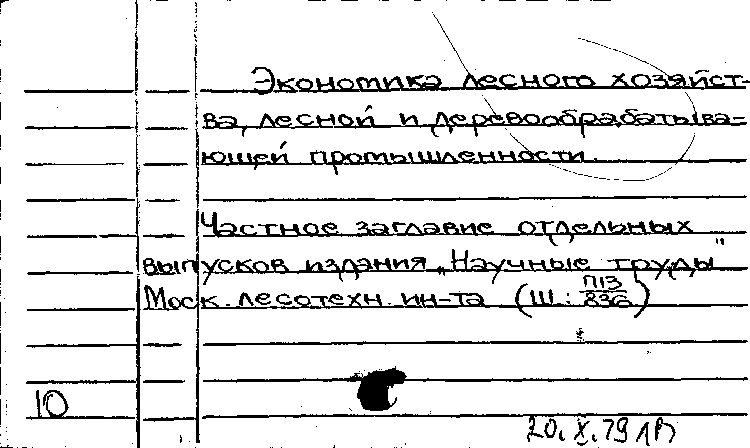 Экономика лесного хозяйст-
ва, лесной и деревообрабатыва-
ющей промышленности.
Частное заглавие отдельных
выпусков издания „Научные труды"
Моск. лесотехн. ин-та (Ш: П13/836)
10
20.X.79